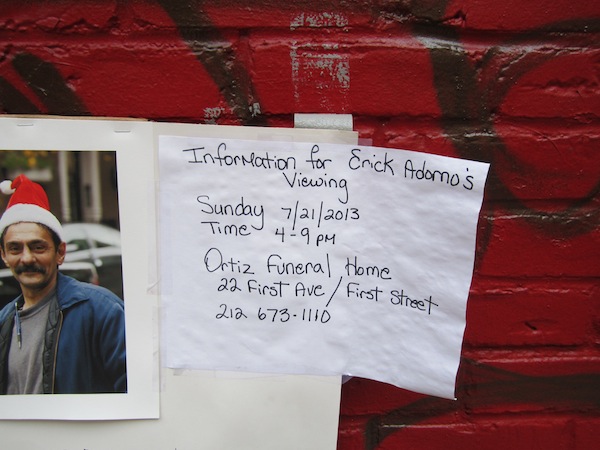 Information for Erick Adorno's
Viewing
Sunday 7/21/2013
Time 4-9 PM
Ortiz Funeral Home
22 First Ave / First Street
212 673-1110